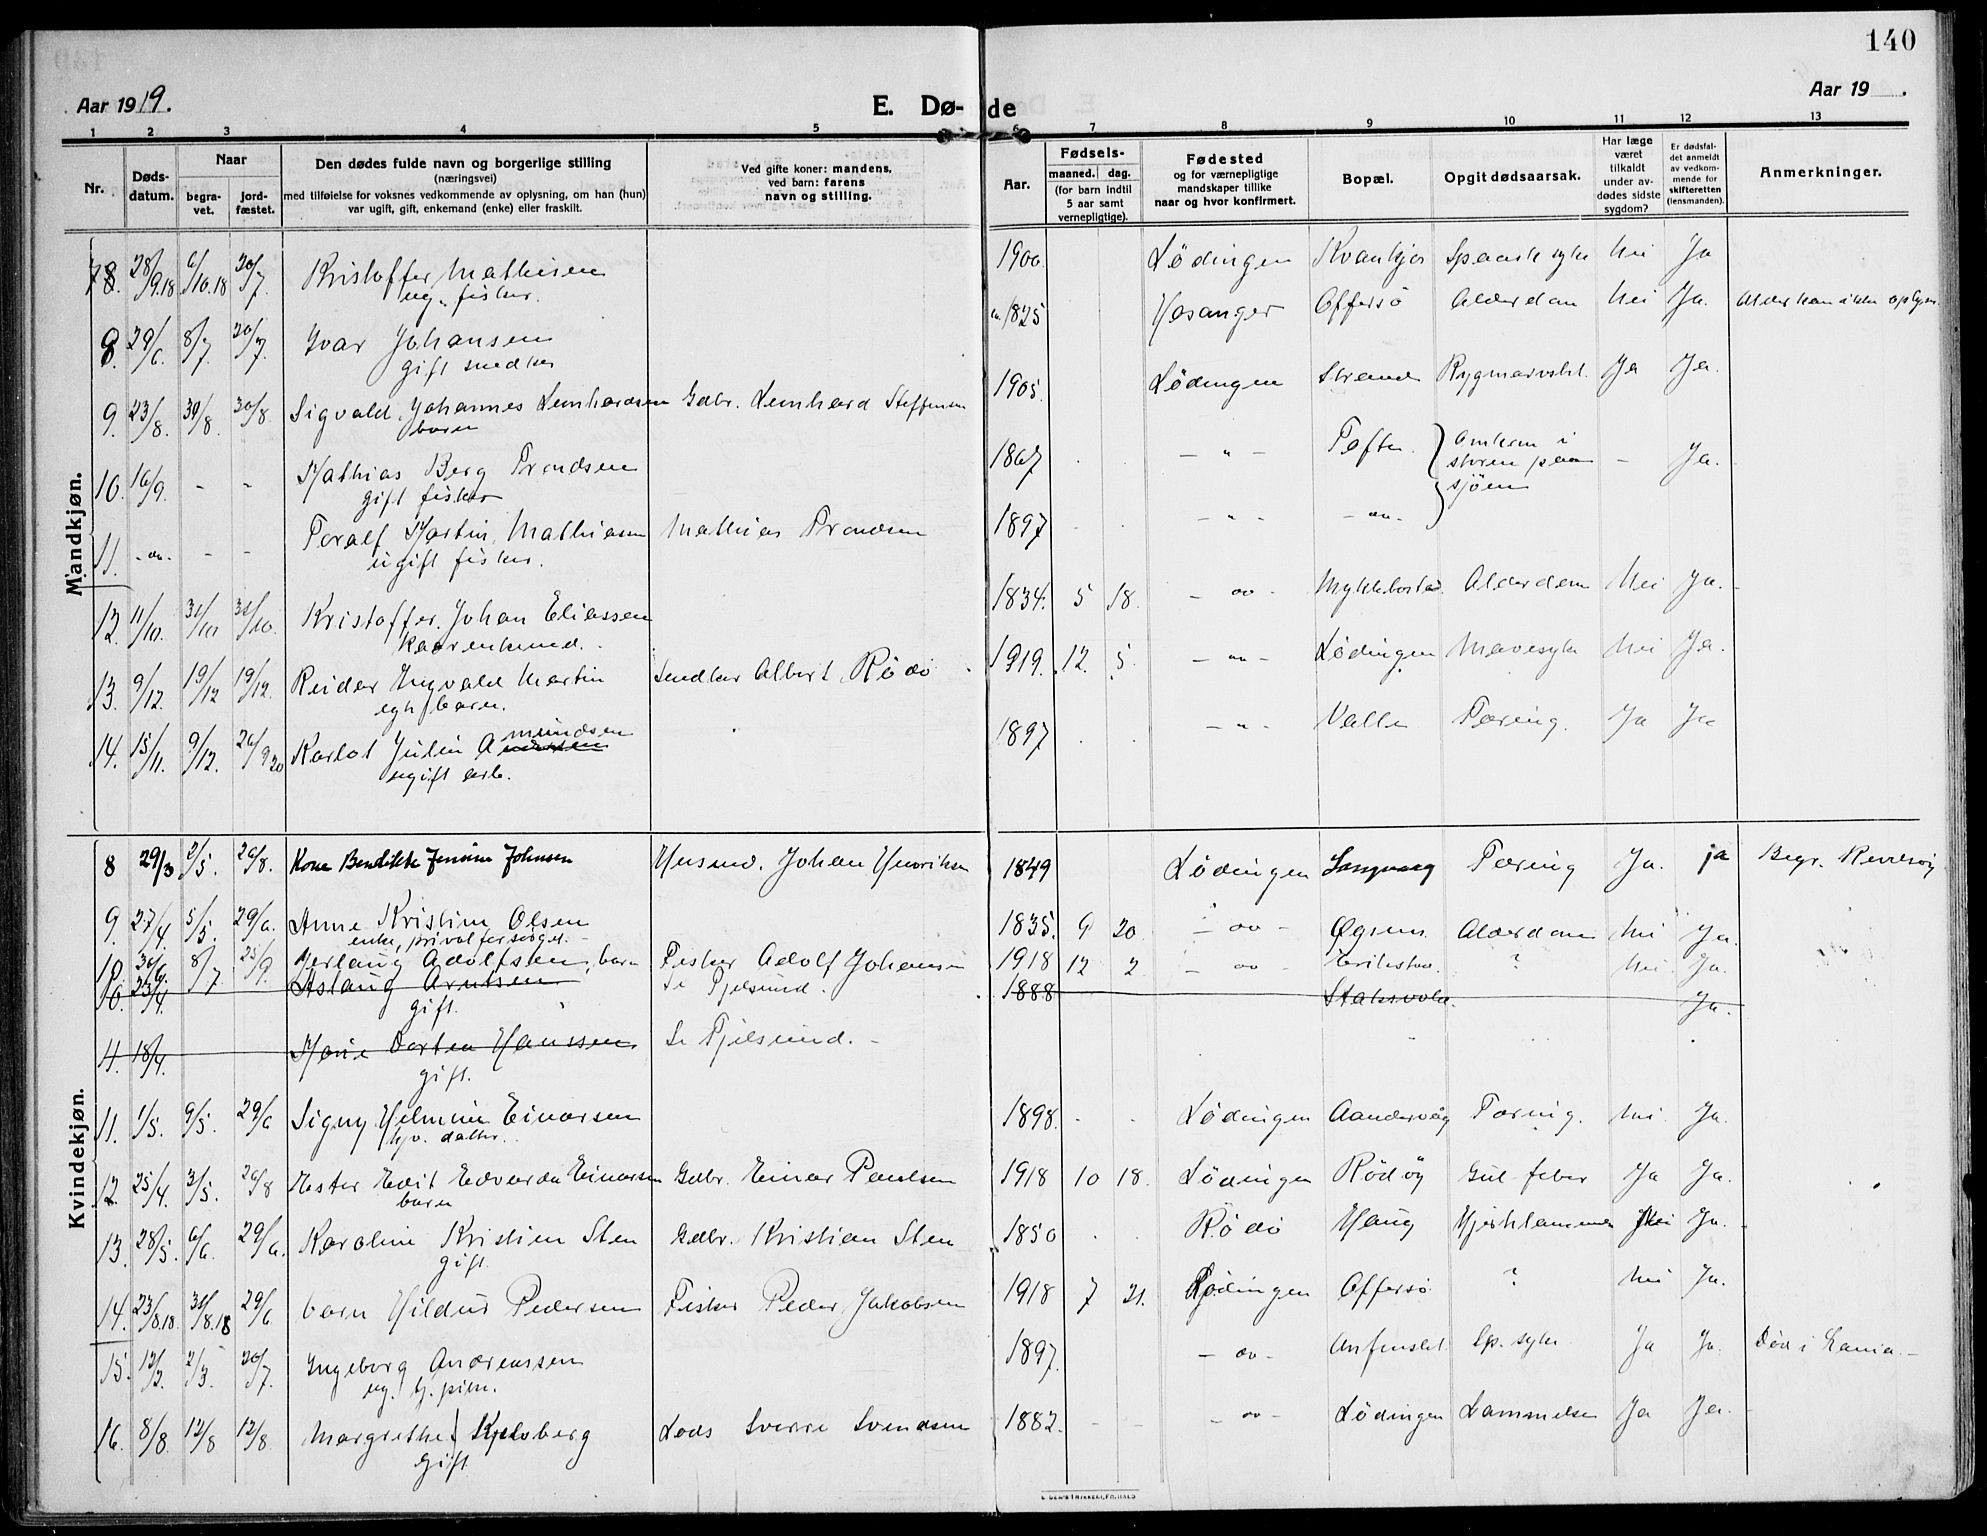 140
Aar 1919.
E. Dø- de
Aar 19 .
1 2 3 4 5 6 7 8 9 10 11 12 13
Nr. Døds-datum. Naar begra-vet. jord-fæstet.
Den dødes fulde navn og borgerlige stilling
(næringsvei)
med tilføielse for voksnes vedkommende av oplysning, om han (hun)
var ugift, gift, enkemand (enke) eller fraskilt.
Ved gifte koner: mandens,
ved barn: farens
navn og stilling.
Aar.
Fødsels-
maaned. dag.
(for barn indtil
5 aar samt
vernepligtige).
Fødested
og for vernepligtige
mandskaper tillike
naar og hvor konfirmert.
Bopæl.
Opgit dødsaarsak.
Har læge
været
tilkaldt
under av-
dødes sidste
sygdom?
Er dødsfal-
det anmeldt
av vedkom-
mende for
skifteretten
(lensmanden).
Anmerkninger.
Mandkjøn.
78. 28/9.18 6/10.18 20/7. Kristoffer Mathisen 1900. Lødingen Kvankjos Spansk syke Nei Ja
ug. fisker.
8. 29/6. 8/7. 20/7. Ivar Johansen 1825 Hosanger Offersø Alderdom Nei Ja.
gift snedker
9. 23/8. 30/8. 30/8. Sigvald Johannes Lenhardsen Gdbr. Lenhard Steffensen 1905. Lødingen Strand Ja Ja.
barn
10. 16/9. - - Mathias Berg Trondsen 1867 - " - omkom i - Ja.
gift fisker storm paa
sjøen
11. - " - - - Toralf Martin Mathiasen Mathias Trondsen 1897 - " - - " -
ugift fisker.
12. 11/10. 31/10 31/10. Kristoffer Johan Eliassen 1834. 5 18. - " - Myklebostad Alderdom Nei Ja.
kaarenkmd.
13. 9/12. 19/12 19/12. Reidar Ingvald Martin Snedker Albert Rødø 1919. 12. 5. - " - Lødingen Mavesyke Nei Ja.
egte barn.
14. 15/11. 9/12. 26/9 20 Karlot Julin Amundsen 1897 - " - Valle Tæring. Ja Ja
ugift arb.
Kvindekjøn.
8 29/3 2/5. 26/8. Kone Bendikte Jensine Johnsen Husmd. Johan Henriksen 1849 Lødingen Tæring Ja. ja Begr.
9. 27/4. 5/5. 29/6. Anne Kristine Olsen 1835. 9 20. - " - Alderdom Nei Ja.
enke, privat forsørget.
10. 30/6. 8/7. 25/9. Gerlaug Adolfsen, barn Fisker Adolf Johansen 1918 12 2 - " - Erikstad. ? Nei. Ja.
10. 23/4. Aslaug Arntsen Se Tjelsund. 1888 Staksvold. Ja.
gift.
11. 18/4. Marie Dortea Hanssen Se Tjelsund.
gift.
11. 1/5. 9/5. 29/6 Signy Helmine Einarsen 1898. Lødingen Aandervåg Tæring. Nei. Ja.
hjv. datter.
12. 25/4. 3/5. 26/8 Ester Edit Edvarda Einarsen Gdbr. Einar Paulsen 1918 10 18. Lødingen Rødøy Gul feber Ja Ja.
barn
13. 28/5. 6/6. 29/6. Karoline Kristine Sten Gdbr. Kristian Sten 1850 Rødø Haug Hjertelammelse Nei Ja.
gift.
14. 23/8.18. 31/8.18 29/6 barn Hildur Pedersen Fisker Peder Jakobsen 1918 7 21. Lødingen Offersø ? Nei Ja.
15. 12/2. 2/3. 20/7. Ingeborg Andreassen 1897. - " - Sp. syke. Ja Ja. Død i
ug. tj. pike.
16. 8/8. 12/8 12/8. Margrethe Kjelsberg Lods Sverre Svendsen 1882. - - - " - Lødingen Lammelse Ja Ja.
gift